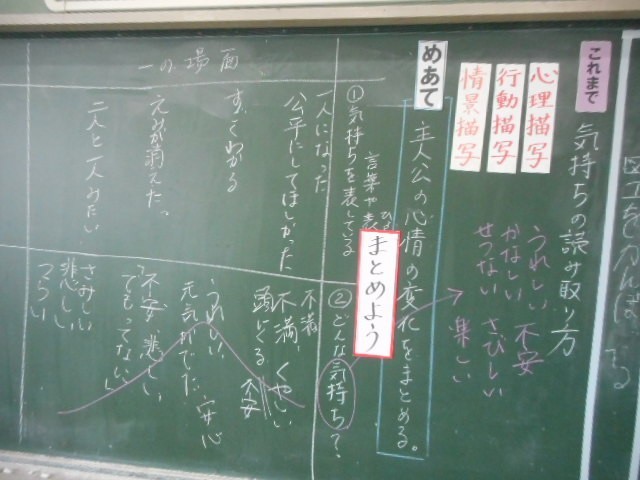 これまで
気持ちの読み取り方
心理描写
行動描写
情景描写
うれしい 不安
かなしい さびしい
せつない 楽しい
めあて
主人公の心情の変化をまとめる。
まとめよう
一の場面
①気持ちを表している
言葉や表
②どんな気持ち?
一人になった
公平にしてほしかった
不満
不満、くやしい
すぐわかる
不安
えがが消えた。
うれしい
元気がでた、安心
二人と一人みたい
不安 悲しい
でもってない
さみしい
悲しい
つらい